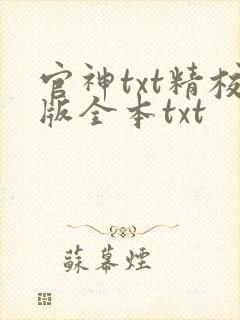 官神txt精校
版全本txt
蘇幕煙